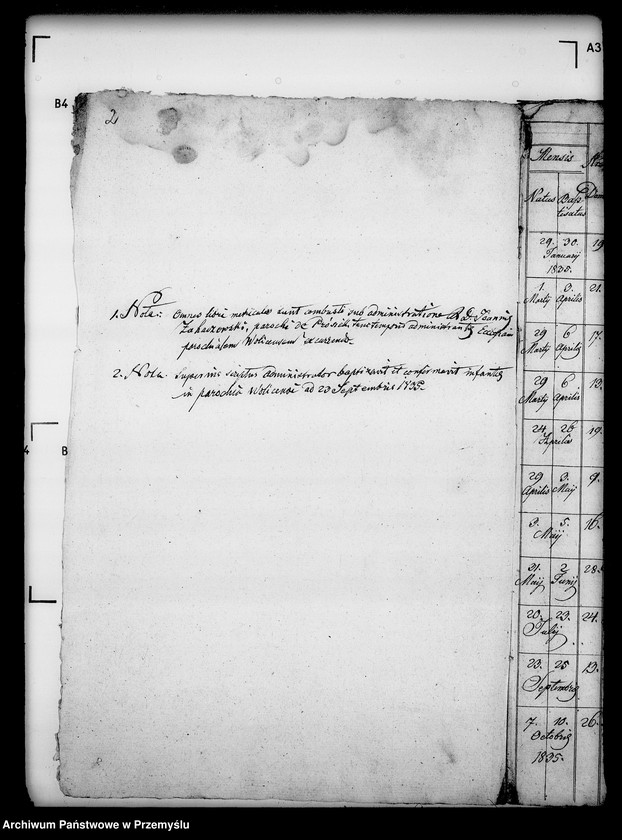 A3
B4
2
1. Nota: Omnes libri metricales sunt combusti sub administratione R. D. Joannis
Zakaszewski, parochi de tunc temporis administrantis Ecclesiam
parochialem Wolicensem excurrendo.
2. Nota. Suprominus scriptus administrator baptizavit et confirmavit infantes
in parochia Wolicensi ad 23 Septembris 1835.
4
B
Mensis
Natus Bap
tisatus
Dom
29. 30. 19
Januarij
1835.
1. 9. 21.
Martij Aprilis
29 6 17.
Martij Aprilis
29 6 13.
Martij Aprilis
24 26 19.
Aprilis
29 3. 9.
Aprilis Maij
3. 5. 16.
Maij
31. 2 28.
Maij Junij
20. 23. 24.
Julij
23. 25 13.
Septembris
7. 10. 26.
Octobris
1835.
Archiwum Państwowe w Przemyślu